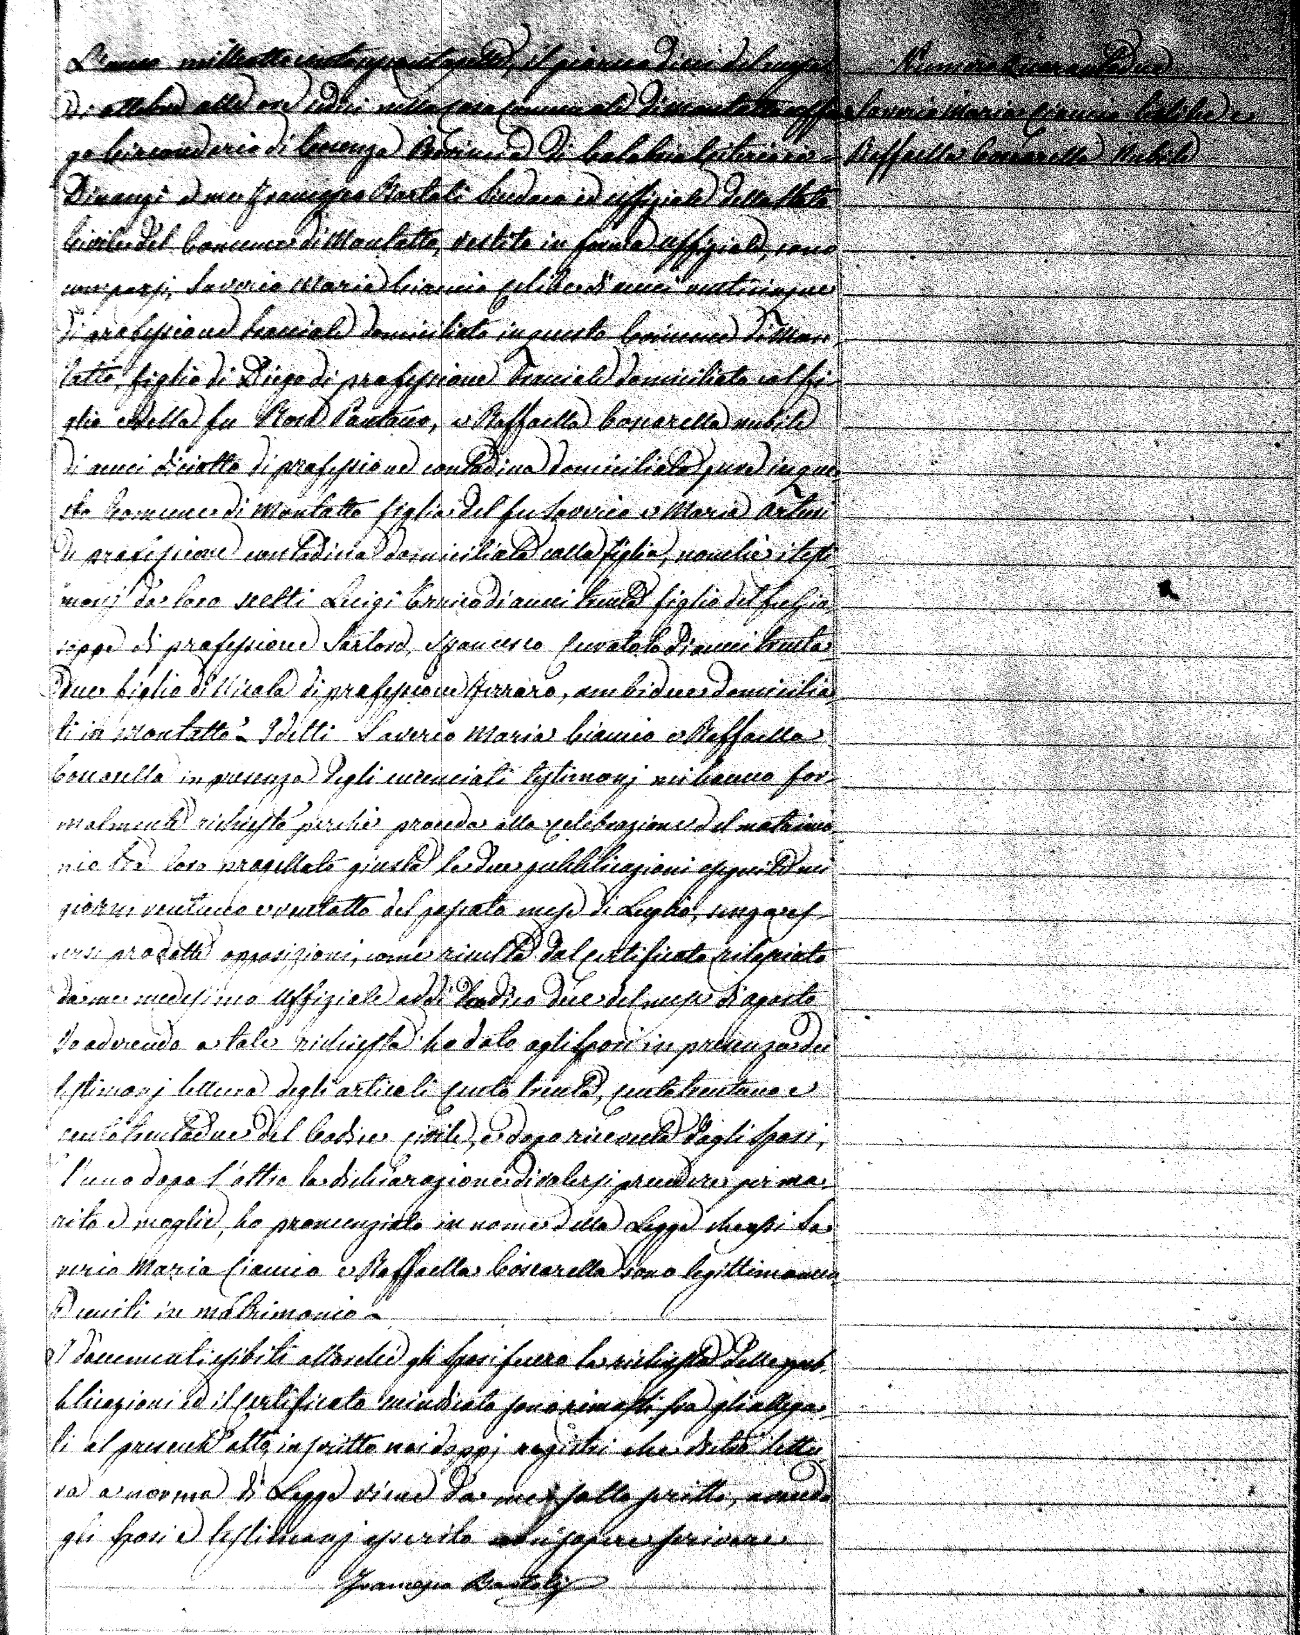 L'anno mille ottocentosessantasette, il giorno dieci del mese
di ottobre alle ore sedici nella casa comunale di Montalto uffu-
go Circondario di Cosenza Provincia di Calabria Citeriore -
Dinanzi a me Francesco Bartoli Sindaco ed uffiziale dello Stato
Civile del Comune di Montalto, vestito in forma uffiziale, sono
comparsi, Saverio Maria Ciancio celibe di anni venticinque
di professione bracciale domiciliato in questo Comune di Mon-
talto, figlio di Diego di professione bracciale domiciliato col fi-
glio e della fu Rosa Pantano, e Raffaella Coscarella nubile
di anni diciotto di professione contadina domiciliata pure in que-
sto Comune di Montalto figlia del fu Saverio e Maria
di professione contadina domiciliata colla figlia, nonchè i testi-
monj da loro scelti Luigi di anni trenta figlio del fu Giu-
seppe di professione Sartore, e Francesco Curatolo di anni trenta-
due figlio di Nicola di professione Ferraro, ambidue domicilia-
ti in Montalto - I detti Saverio Maria Ciancio e Raffaella
Coscarella in presenza degli enunciati testimonj mi hanno for-
malmente richiesto perchè proceda alla celebrazione del matrimo-
nio tra loro progettato giusta le due pubblicazioni eseguite nei
giorni ventuno e ventotto del passato mese di Luglio, senza es-
sersi prodotte opposizioni, come risulta dal certificato rilasciato
da me medesimo Uffiziale addì due del mese di agosto
Io aderendo a tale richiesta ho dato agli sposi in presenza dei
testimonj lettura degli articoli cento trenta, centotrentuno e
centotrentadue del Codice Civile, e dopo ricevuta dagli sposi,
l'uno dopo l'altro la dichiarazione di volersi prendere per ma-
rito e moglie, ho pronunziato in nome della Legge che essi Sa-
verio Maria Ciancio e Raffaella Coscarella sono legittimamen-
te uniti in matrimonio -
I documenti esibiti allorchè gli sposi fecero la richiesta delle pub-
blicazioni ed il certificato suindicato sono rimasti fra gli allega-
ti al presente atto, inscritto nei doppj registri che dietro lettu-
ra a norma di Legge viene da me sottoscritto, avendo
gli sposi e testimonj asserito non sapere scrivere
Francesco Bartoli
Numero Quarantadue
Saverio Maria Ciancio Celibe e
Raffaella Coscarella Nubile